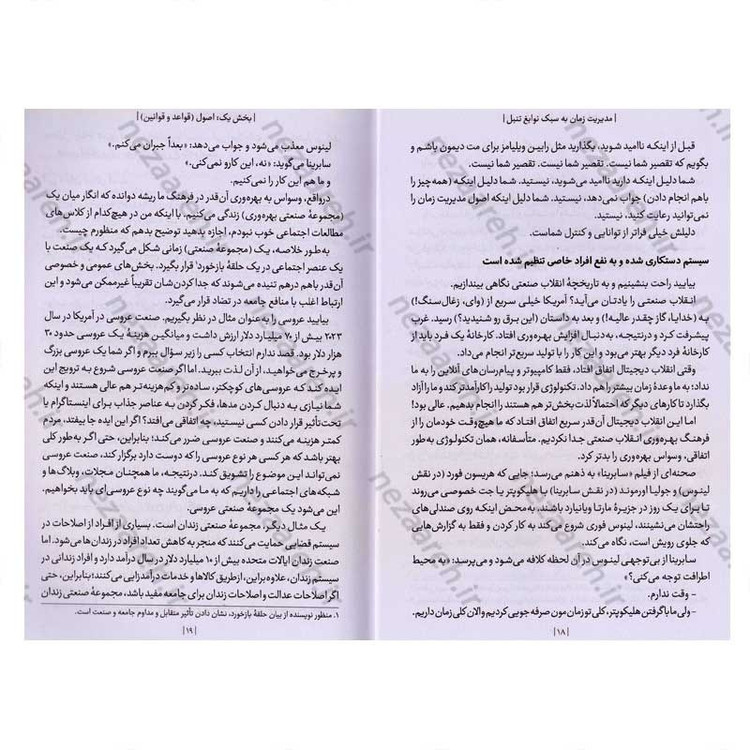 | مدیریت زمان به سبک نوابغ تنبل |
قبل از اینکه ناامید شوید، بگذارید مثل رابین ویلیامز برای مت دیمون باشم و
بگویم که تقصیر شما نیست. تقصیر شما نیست. تقصیر شما نیست.
شما دلیل اینکه دارید ناامید می‌شوید، نیستید. شما دلیل اینکه (همه‌چیز را
باهم انجام دادن) جواب نمی‌دهد، نیستید. شما دلیل اینکه اصول مدیریت زمان را
نمی‌توانید رعایت کنید، نیستید.
دلیلش خیلی فراتر از توانایی و کنترل شماست.
سیستم دستکاری شده و به نفع افراد خاصی تنظیم شده است
بیایید راحت بنشینیم و به تاریخچهٔ انقلاب صنعتی نگاهی بیندازیم.
انقلاب صنعتی را یادتان می‌آید؟ آمریکا خیلی سریع از (وای، زغال‌سنگ!)
به (خدایا، گاز چقدر عالیه!) و بعد به داستان (این برق رو شنیدید؟) رسید. غرب
پیشرفت کرد و درنتیجه، به‌دنبال افزایش بهره‌وری افتاد. کارخانهٔ یک فرد باید از
کارخانهٔ فرد دیگر بهتر می‌بود و این کار را با تولید سریع‌تر انجام می‌داد.
وقتی انقلاب دیجیتال اتفاق افتاد، فقط کامپیوتر و پیام‌رسان‌های آنلاین را به ما
نداد؛ به ما وعدهٔ زمان بیشتر را هم داد. تکنولوژی قرار بود تولید را کارآمدتر کند و ما را آزاد
بگذارد تا کارهای دیگر که احتمالاً لذت‌بخش‌تر هم هستند را انجام بدهیم. عالی بود!
اما این انقلاب دیجیتال آن‌قدر سریع اتفاق افتاد که ما هیچ‌وقت خودمان را از
فرهنگ بهره‌وری انقلاب صنعتی جدا نکردیم. متأسفانه، همان تکنولوژی به‌طور
اتفاقی، وسواس بهره‌وری را بدتر کرد.
صحنه‌ای از فیلم «سابرینا» به ذهنم می‌رسد: جایی که هریسون فورد (در نقش
لینوس) و جولیا اورموند (در نقش سابرینا) با هلیکوپتر یا جت خصوصی می‌روند
تا برای یک روز در جزیرهٔ مارتا ویانیارد باشند. به‌محض اینکه روی صندلی های
راحتشان می‌نشینند، لینوس فوری شروع می‌کند به کار کردن و فقط به گزارش‌هایی
که جلوی رویش است، نگاه می‌کند.
سابرینا از بی‌توجهی لینوس در آن لحظه کلافه می‌شود و می‌پرسد: «به محیط
اطرافت توجه می‌کنی؟»
- وقت ندارم.
- ولی ما با گرفتن هلیکوپتر، کلی تو زمان مون صرفه جویی کردیم و الان کلی زمان داریم.
| ۱۸ |
| بخش یک: اصول (قواعد و قوانین) |
لینوس معذب می‌شود و جواب می‌دهد: «بعداً جبران می‌کنم.»
سابرینا می‌گوید: «نه، این کارو نمی‌کنی.»
و ما هم این کار را نمی‌کنیم.
درواقع، وسواس به بهره‌وری آن‌قدر در فرهنگ ما ریشه دوانده که انگار میان یک
(مجموعهٔ صنعتی بهره‌وری) زندگی می‌کنیم. با اینکه من در هیچ‌کدام از کلاس‌های
مطالعات اجتماعی خوب نبودم، اجازه بدهید توضیح بدهم که منظورم چیست.
به‌طور خلاصه، یک (مجموعهٔ صنعتی) زمانی شکل می‌گیرد که یک صنعت با
یک عنصر اجتماعی در یک حلقهٔ بازخورد۱ قرار بگیرد. بخش‌های عمومی و خصوصی
آن‌قدر باهم درهم تنیده می‌شوند که جدا کردن‌شان تقریباً غیرممکن می‌شود و این
ارتباط اغلب با منافع جامعه در تضاد قرار می‌گیرد.
بیایید عروسی را به عنوان مثال در نظر بگیریم. صنعت عروسی در آمریکا در سال
۲۰۲۳ بیش از ۷۰ میلیارد دلار ارزش داشت و میانگین هزینهٔ یک عروسی حدود ۳۰
هزار دلار بود. قصد ندارم انتخاب کسی را زیر سؤال ببرم و اگر شما یک عروسی بزرگ
و پرخرج می‌خواهید، از آن لذت ببرید. اما اگر صنعت عروسی شروع به ترویج این
ایده کند که عروسی‌های کوچکتر، ساده‌تر و کم‌هزینه‌تر هم عالی هستند و اینکه
شما نیازی به دنبال کردن مدها، فکر کردن به عناصر جذاب برای اینستاگرام یا
تحت‌تأثیر قرار دادن کسی نیستید، چه اتفاقی می‌افتد؟ اگر این ایده جا بیفتد، مردم
کمتر هزینه می‌کنند و صنعت عروسی ضرر می‌کند؛ بنابراین، حتی اگر به‌طور کلی
بهتر باشد که هر کسی هر نوع عروسی را که دوست دارد برگزار کند، صنعت عروسی
نمی‌تواند این موضوع را تشویق کند. درنتیجه، ما همچنان مجلات، وبلاگ‌ها و
شبکه‌های اجتماعی را داریم که به ما می‌گویند چه نوع عروسی‌ای باید بخواهیم.
این می‌شود یک مجموعهٔ صنعتی عروسی.
یک مثال دیگر، مجموعهٔ صنعتی زندان است. بسیاری از افراد از اصلاحات در
سیستم قضایی حمایت می‌کنند که منجر به کاهش تعداد افراد در زندان‌ها می‌شود. اما
صنعت زندان ایالات متحده بیش از ۱۰ میلیارد دلار در سال درآمد دارد و افراد زندانی در
سیستم زندان، علاوه‌براین، از طریق کالاها و خدمات درآمدزایی می‌کنند؛ بنابراین، حتی
اگر اصلاحات عدالت و اصلاحات زندان برای جامعه مفید باشد، مجموعهٔ صنعتی زندان
۱. منظور نویسنده از بیان حلقهٔ بازخورد، نشان دادن تأثیر متقابل و مداوم جامعه و صنعت است.
| ۱۹ |
nezaareh.ir